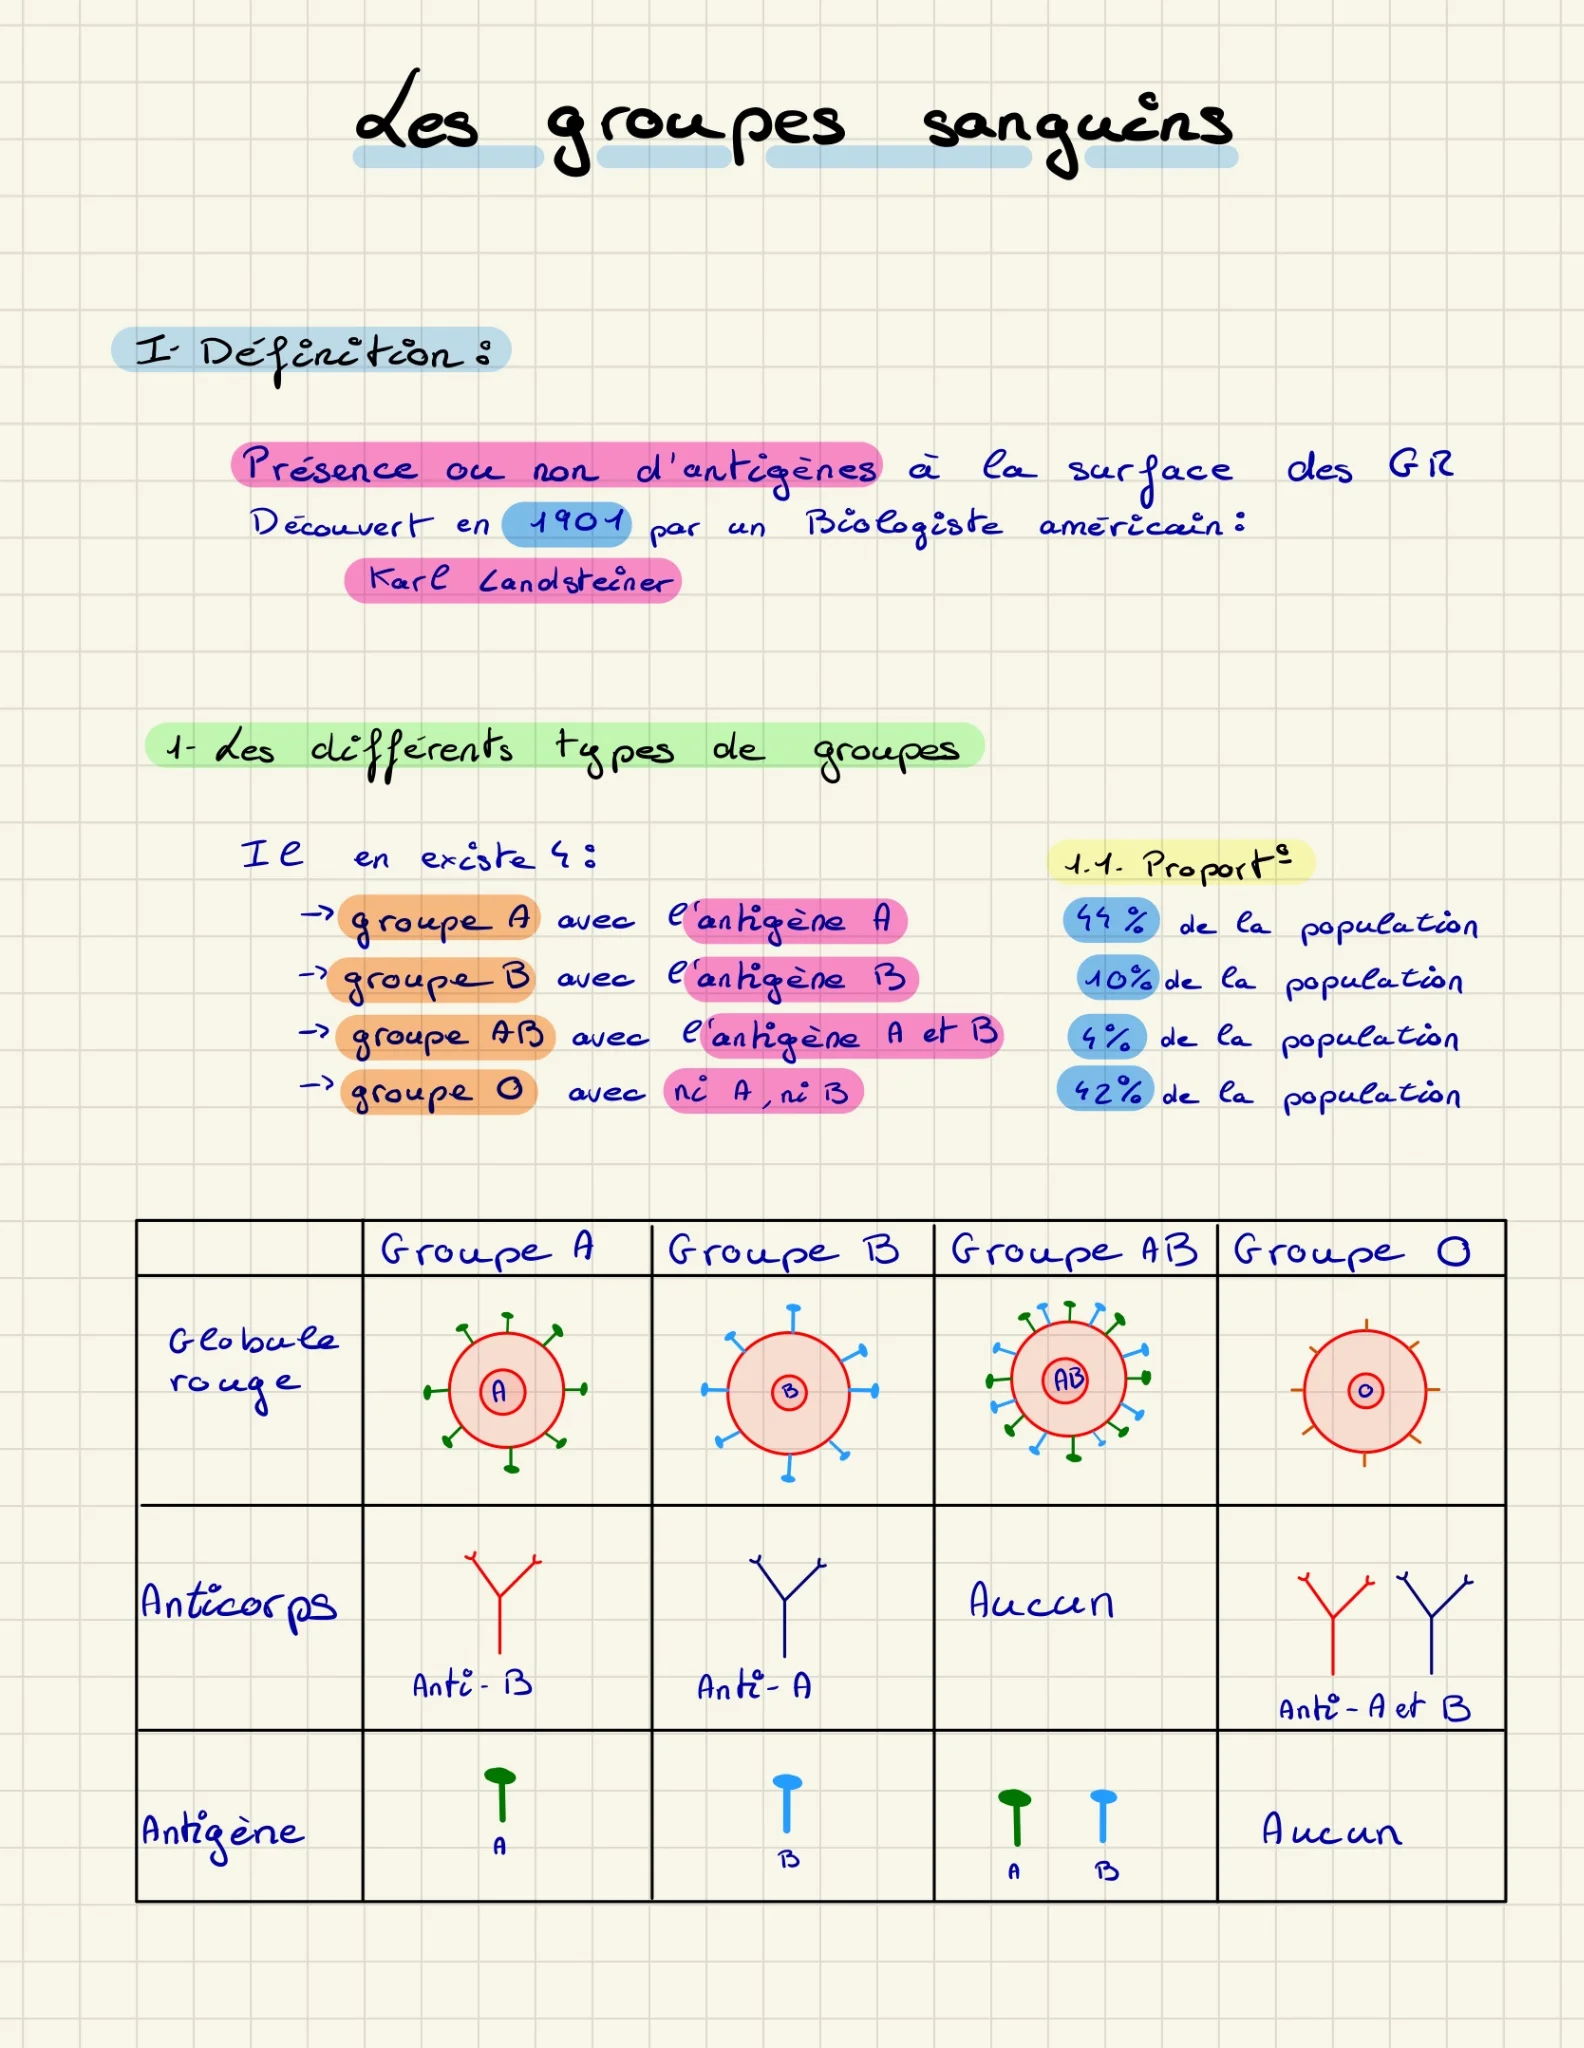 Les groupes sanguins
I- Définition :
Présence ou non d'antigènes à la surface des GR
Découvert en 1901 par un Biologiste américain :
Karl Landsteiner
1- Les différents types de groupes
Il en existe 4 :
1.1. Proport°
→ groupe A avec l'antigène A
44% de la population
→ groupe B avec l'antigène B
10% de la population
→ groupe AB avec l'antigène A et B
4% de la population
→ groupe O avec ni A, ni B
42% de la population
Groupe A Groupe B Groupe AB Groupe O
Globule
rouge
A B AB O
Anticorps
Aucun
Anti-B Anti-A Anti-A et B
Antigène
Aucun
A B A B